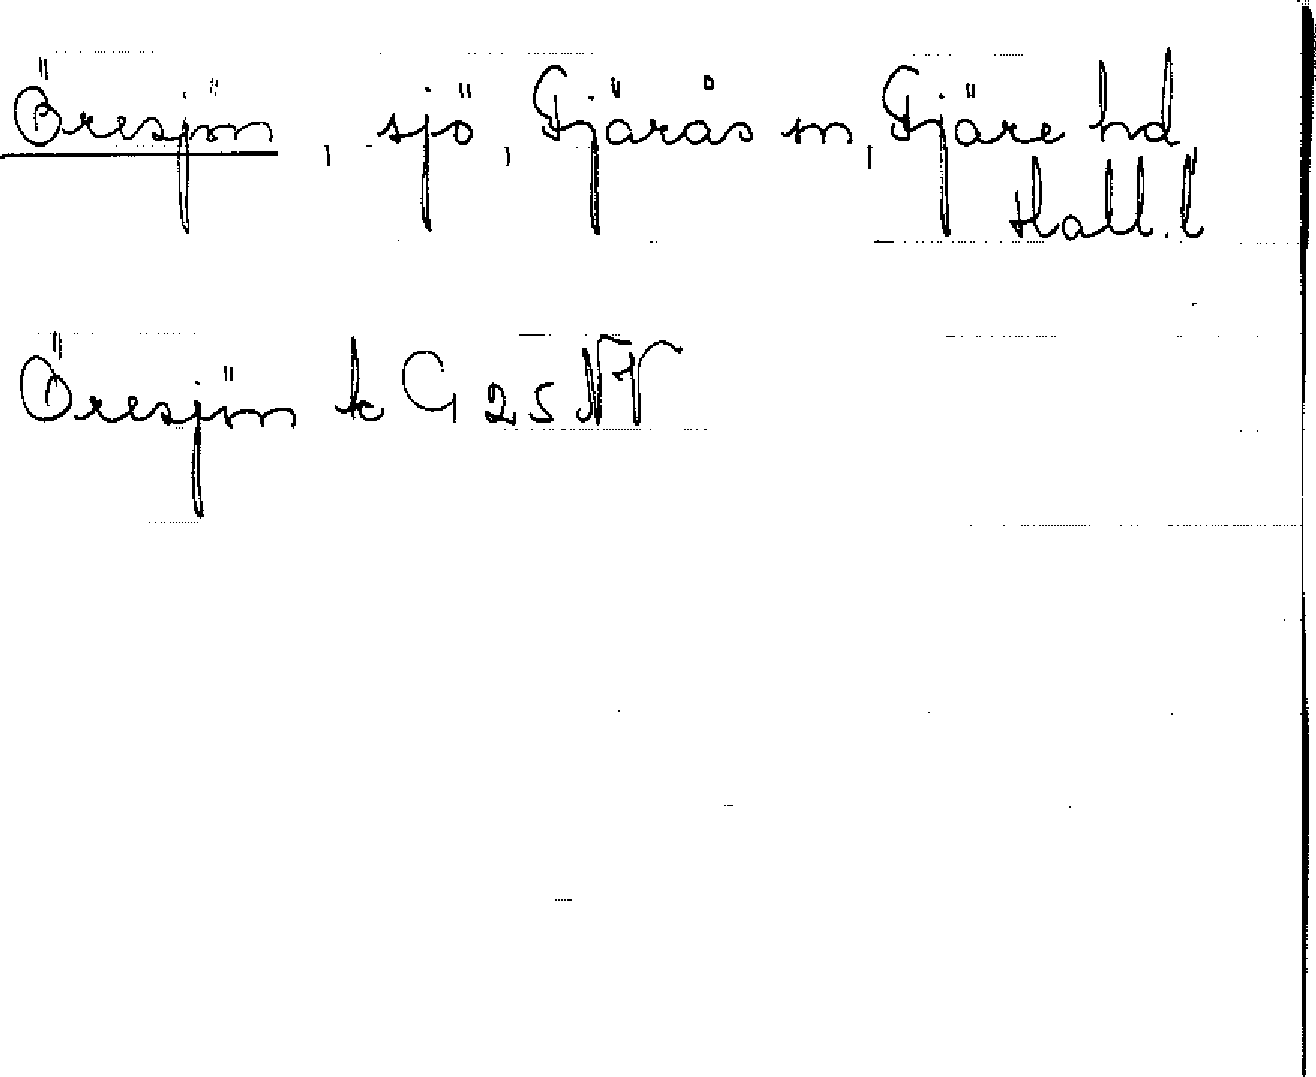 Öresjön, sjö, Fjärås sn, Fjäre hd,
Hall. l
Öresjön k G 25 NV